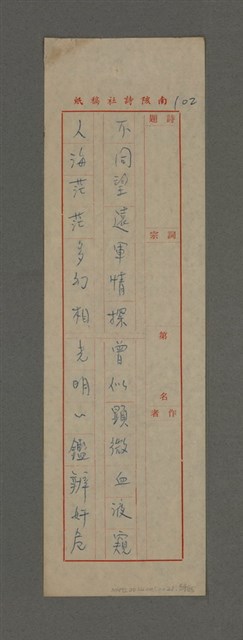 南陔詩社稿紙
102
詩題
詞宗
第 名
作者
不同望遠軍情探曾似顯微血液窺
人海茫茫多幻相光明心鑑辨奸危